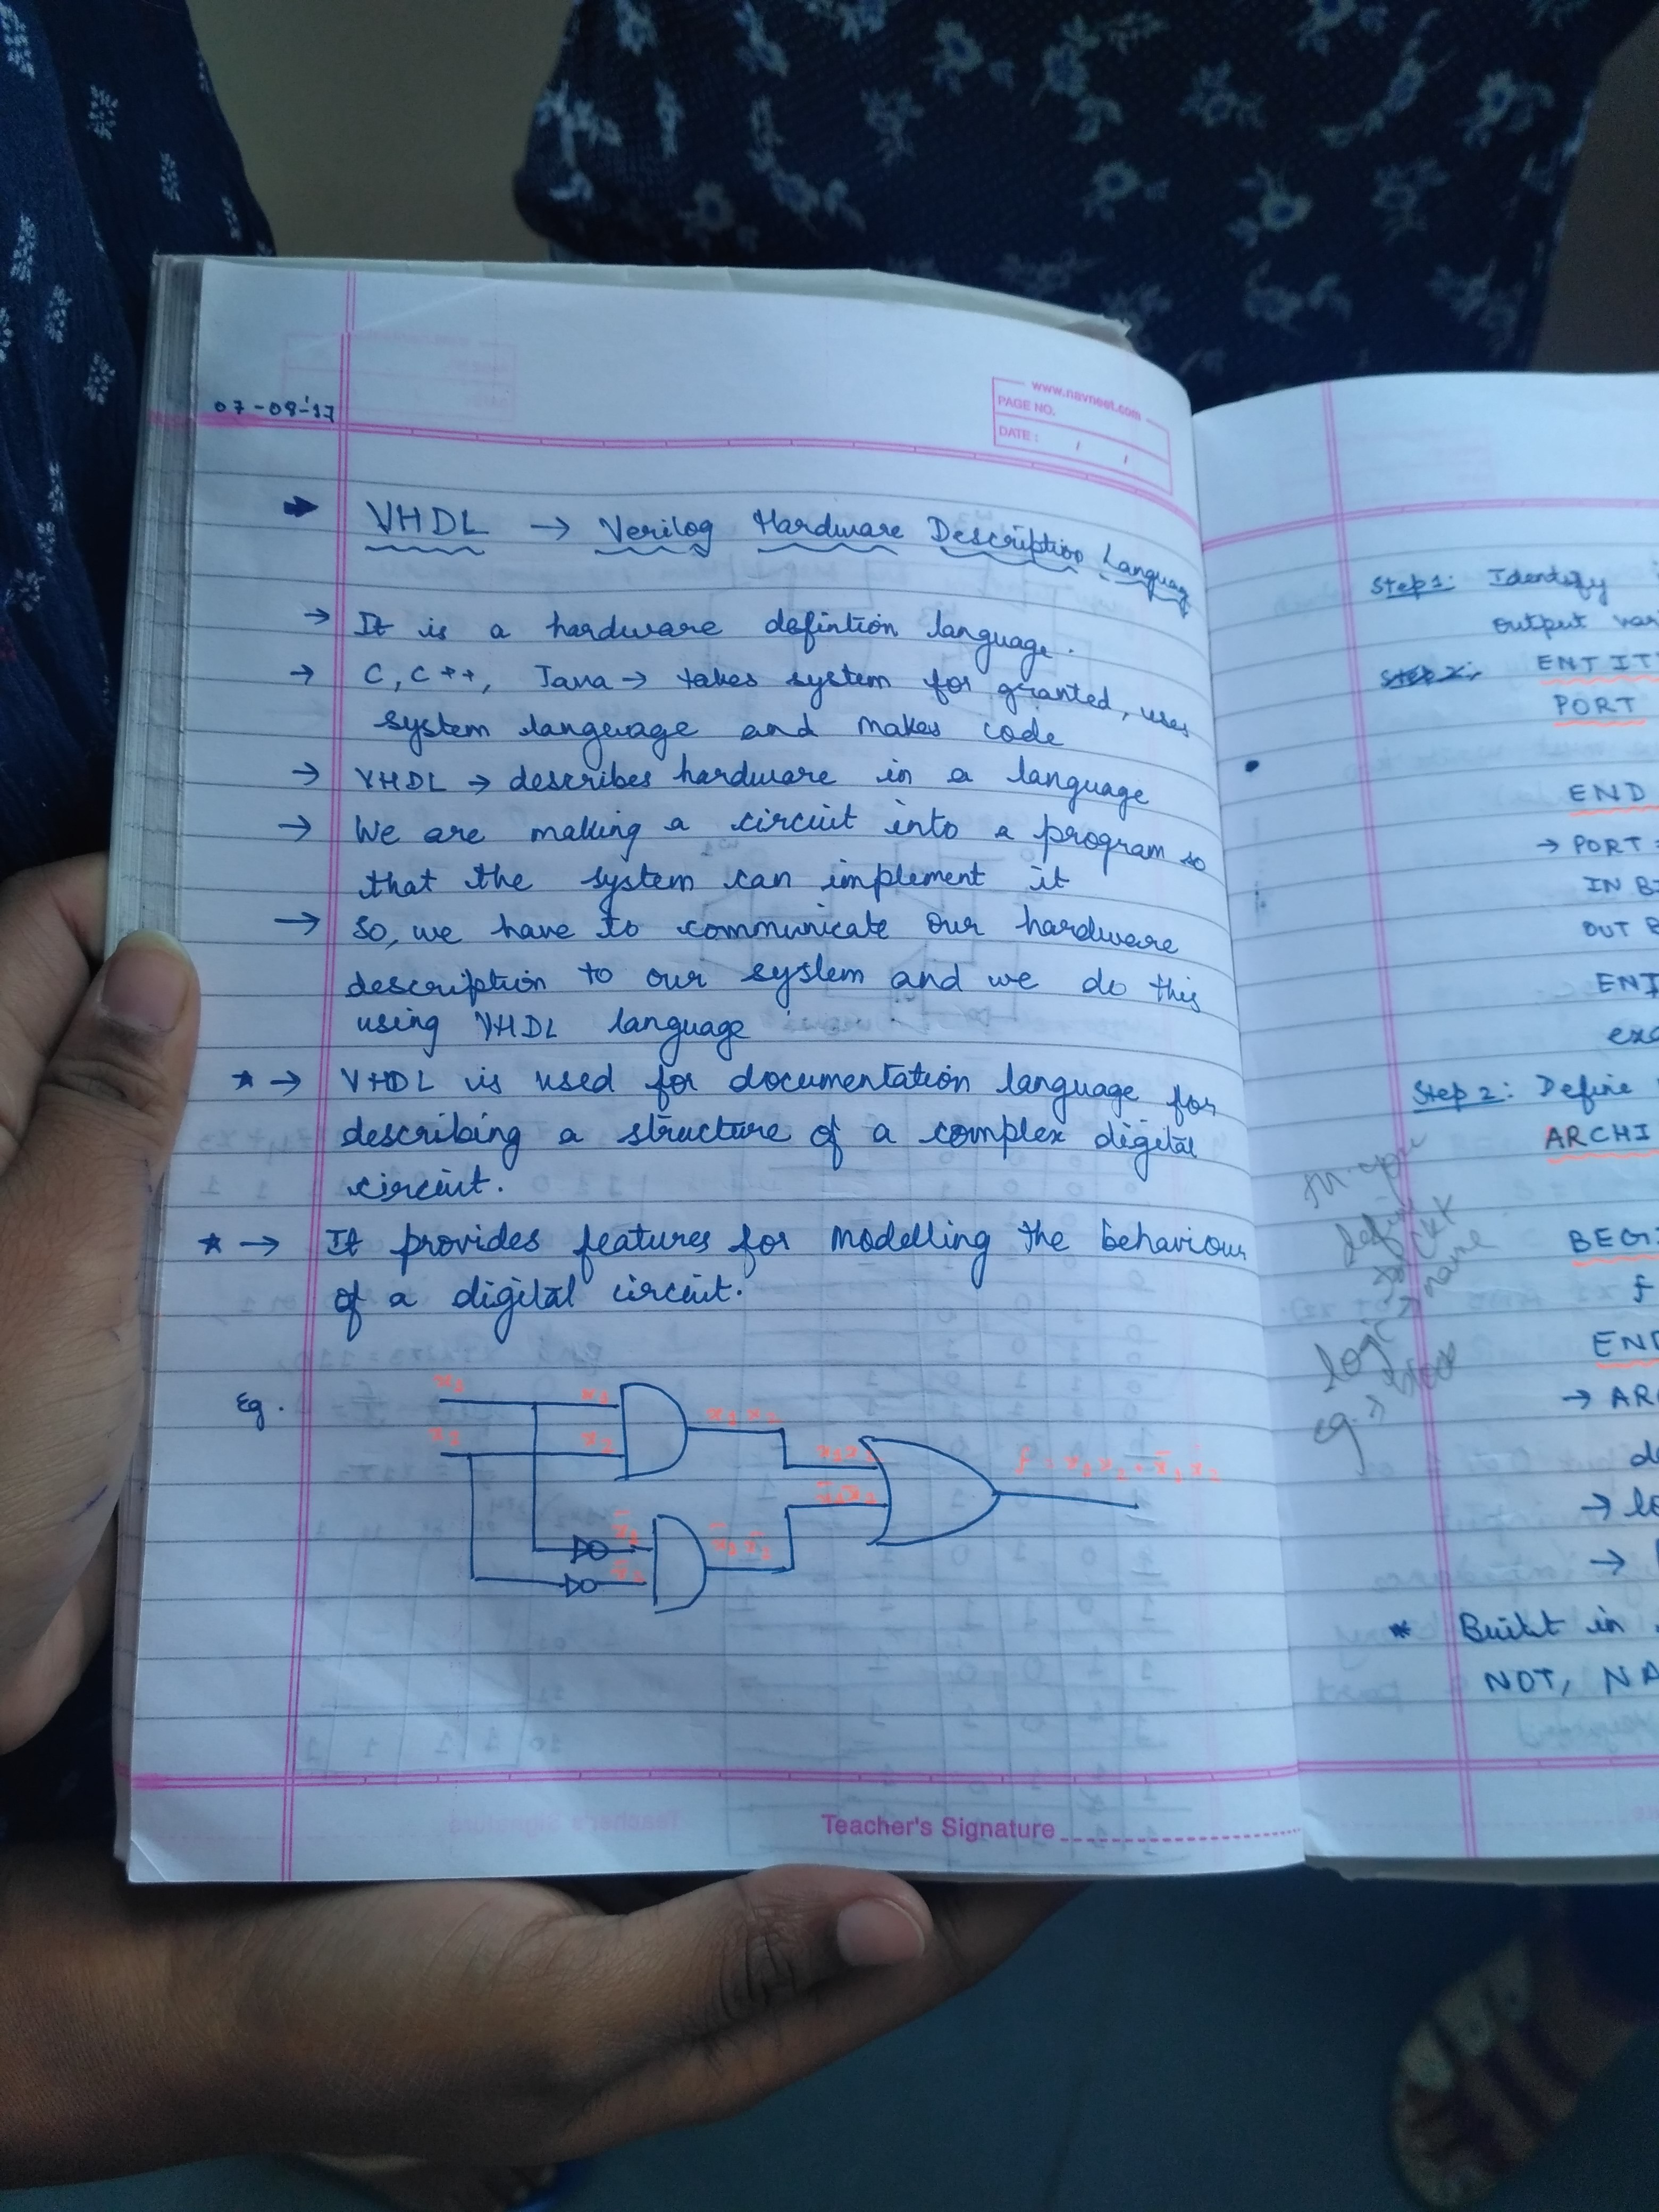 www.navneet.com
PAGE NO.
DATE : / /
07-08-'17
VHDL → Verilog Hardware Description Language
→ It is a hardware defintion language.
→ C, C++, Java → takes system for granted, uses
system language and makes code
→ VHDL → describes hardware in a language
→ We are making a circuit into a program so
that the system can implement it
→ So, we have to communicate our hardware
description to our system and we do this
using VHDL language
★ → VHDL is used for documentation language for
describing a structure of a complex digital
circuit.
★ → It provides features for modelling the behaviour
of a digital circuit.
Eg.
x1 x1 x1x2
x2 x2 x1x2
f = x1x2 + x̄1x̄2
x̄1 x̄1x̄2
x̄2
Teacher's Signature
Step 1: Identify
output
ENTIT
PORT
END
→ PORT
IN B
OUT B
Step 2: Define
ARCHI
define
name
BEGI
f
logic
eg. >
END
→ AR
→ lo
* Built in
NOT, NA